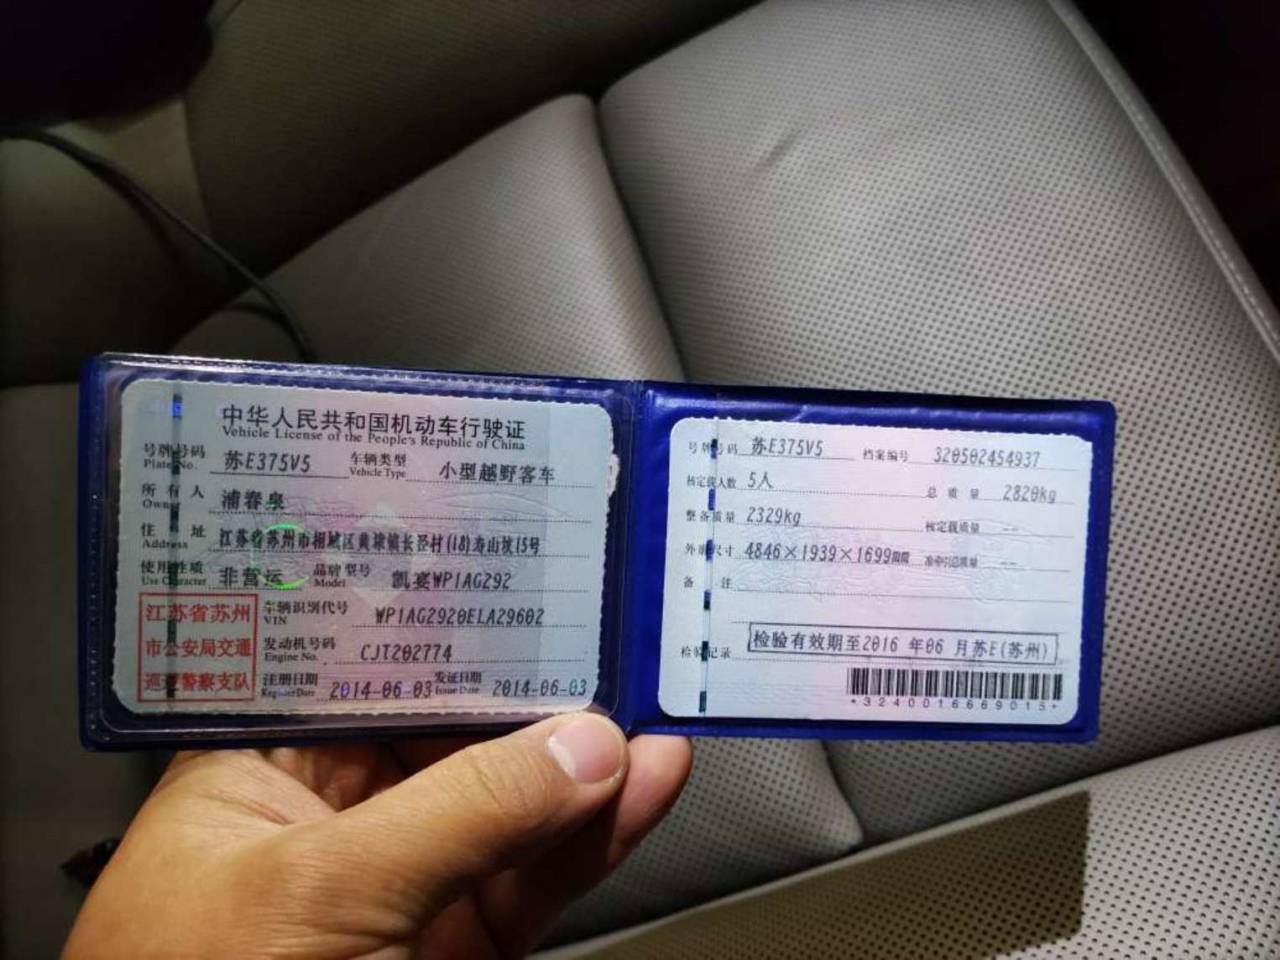 中华人民共和国机动车行驶证
Vehicle License of the People's Republic of China
号牌号码 苏E375V5 车辆类型 小型越野客车
Plate No. Vehicle Type
所有人 浦春泉
Owner
住址 江苏省苏州市相城区黄埭镇长泾村(18)寿山坟15号
Address
使用性质 非营运 品牌型号 凯宴WP1AG292
Use Character Model
江苏省苏州
市公安局交通
巡逻警察支队
车辆识别代号 WP1AG2920ELA29602
VIN
发动机号码 CJT202774
Engine No.
注册日期 2014-06-03 发证日期 2014-06-03
Register Date Issue Date
号牌号码 苏E375V5 档案编号 320502454937
核定载人数 5人 总质量 2820kg
整备质量 2329kg 核定载质量 --
外廓尺寸 4846×1939×1699mm 准牵引总质量 --
备注
检验记录 检验有效期至2016年06月苏E(苏州)
*3240016669015*